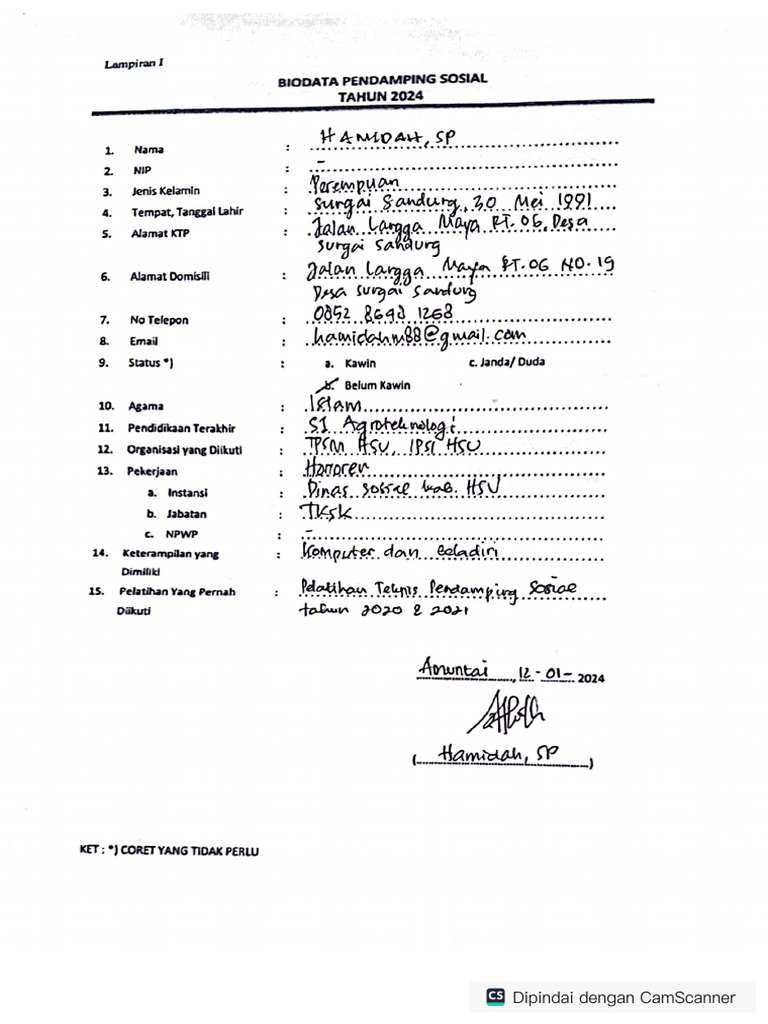 Lampiran I
BIODATA PENDAMPING SOSIAL
TAHUN 2024
1. Nama : HAMIDAH, SP
2. NIP : -
3. Jenis Kelamin : Perempuan
4. Tempat, Tanggal Lahir : Sungai Sandung, 30 Mei 1991
5. Alamat KTP : Jalan Langga Maya RT. 06, Desa
Sungai Sandung
6. Alamat Domisili : Jalan Langga Maya RT. 06 NO. 19
Desa Sungai Sandung
7. No Telepon : 0852 8693 1268
8. Email : hamidahm88@gmail.com
9. Status *) : a. Kawin c. Janda/ Duda
b. Belum Kawin
10. Agama : Islam
11. Pendidikaan Terakhir : S1 Agroteknologi
12. Organisasi yang Diikuti : TPSM HSU, IPSI HSU
13. Pekerjaan : Honorer
a. Instansi : Dinas Sosial kab. HSU
b. Jabatan : TKSK
c. NPWP : -
14. Keterampilan yang : Komputer dan Beladiri
Dimiliki
15. Pelatihan Yang Pernah : Pelatihan Teknis Pendamping Sosial
Diikuti tahun 2020 & 2021
Amuntai, 12-01-2024
(Hamidah, SP)
KET : *) CORET YANG TIDAK PERLU
CS Dipindai dengan CamScanner